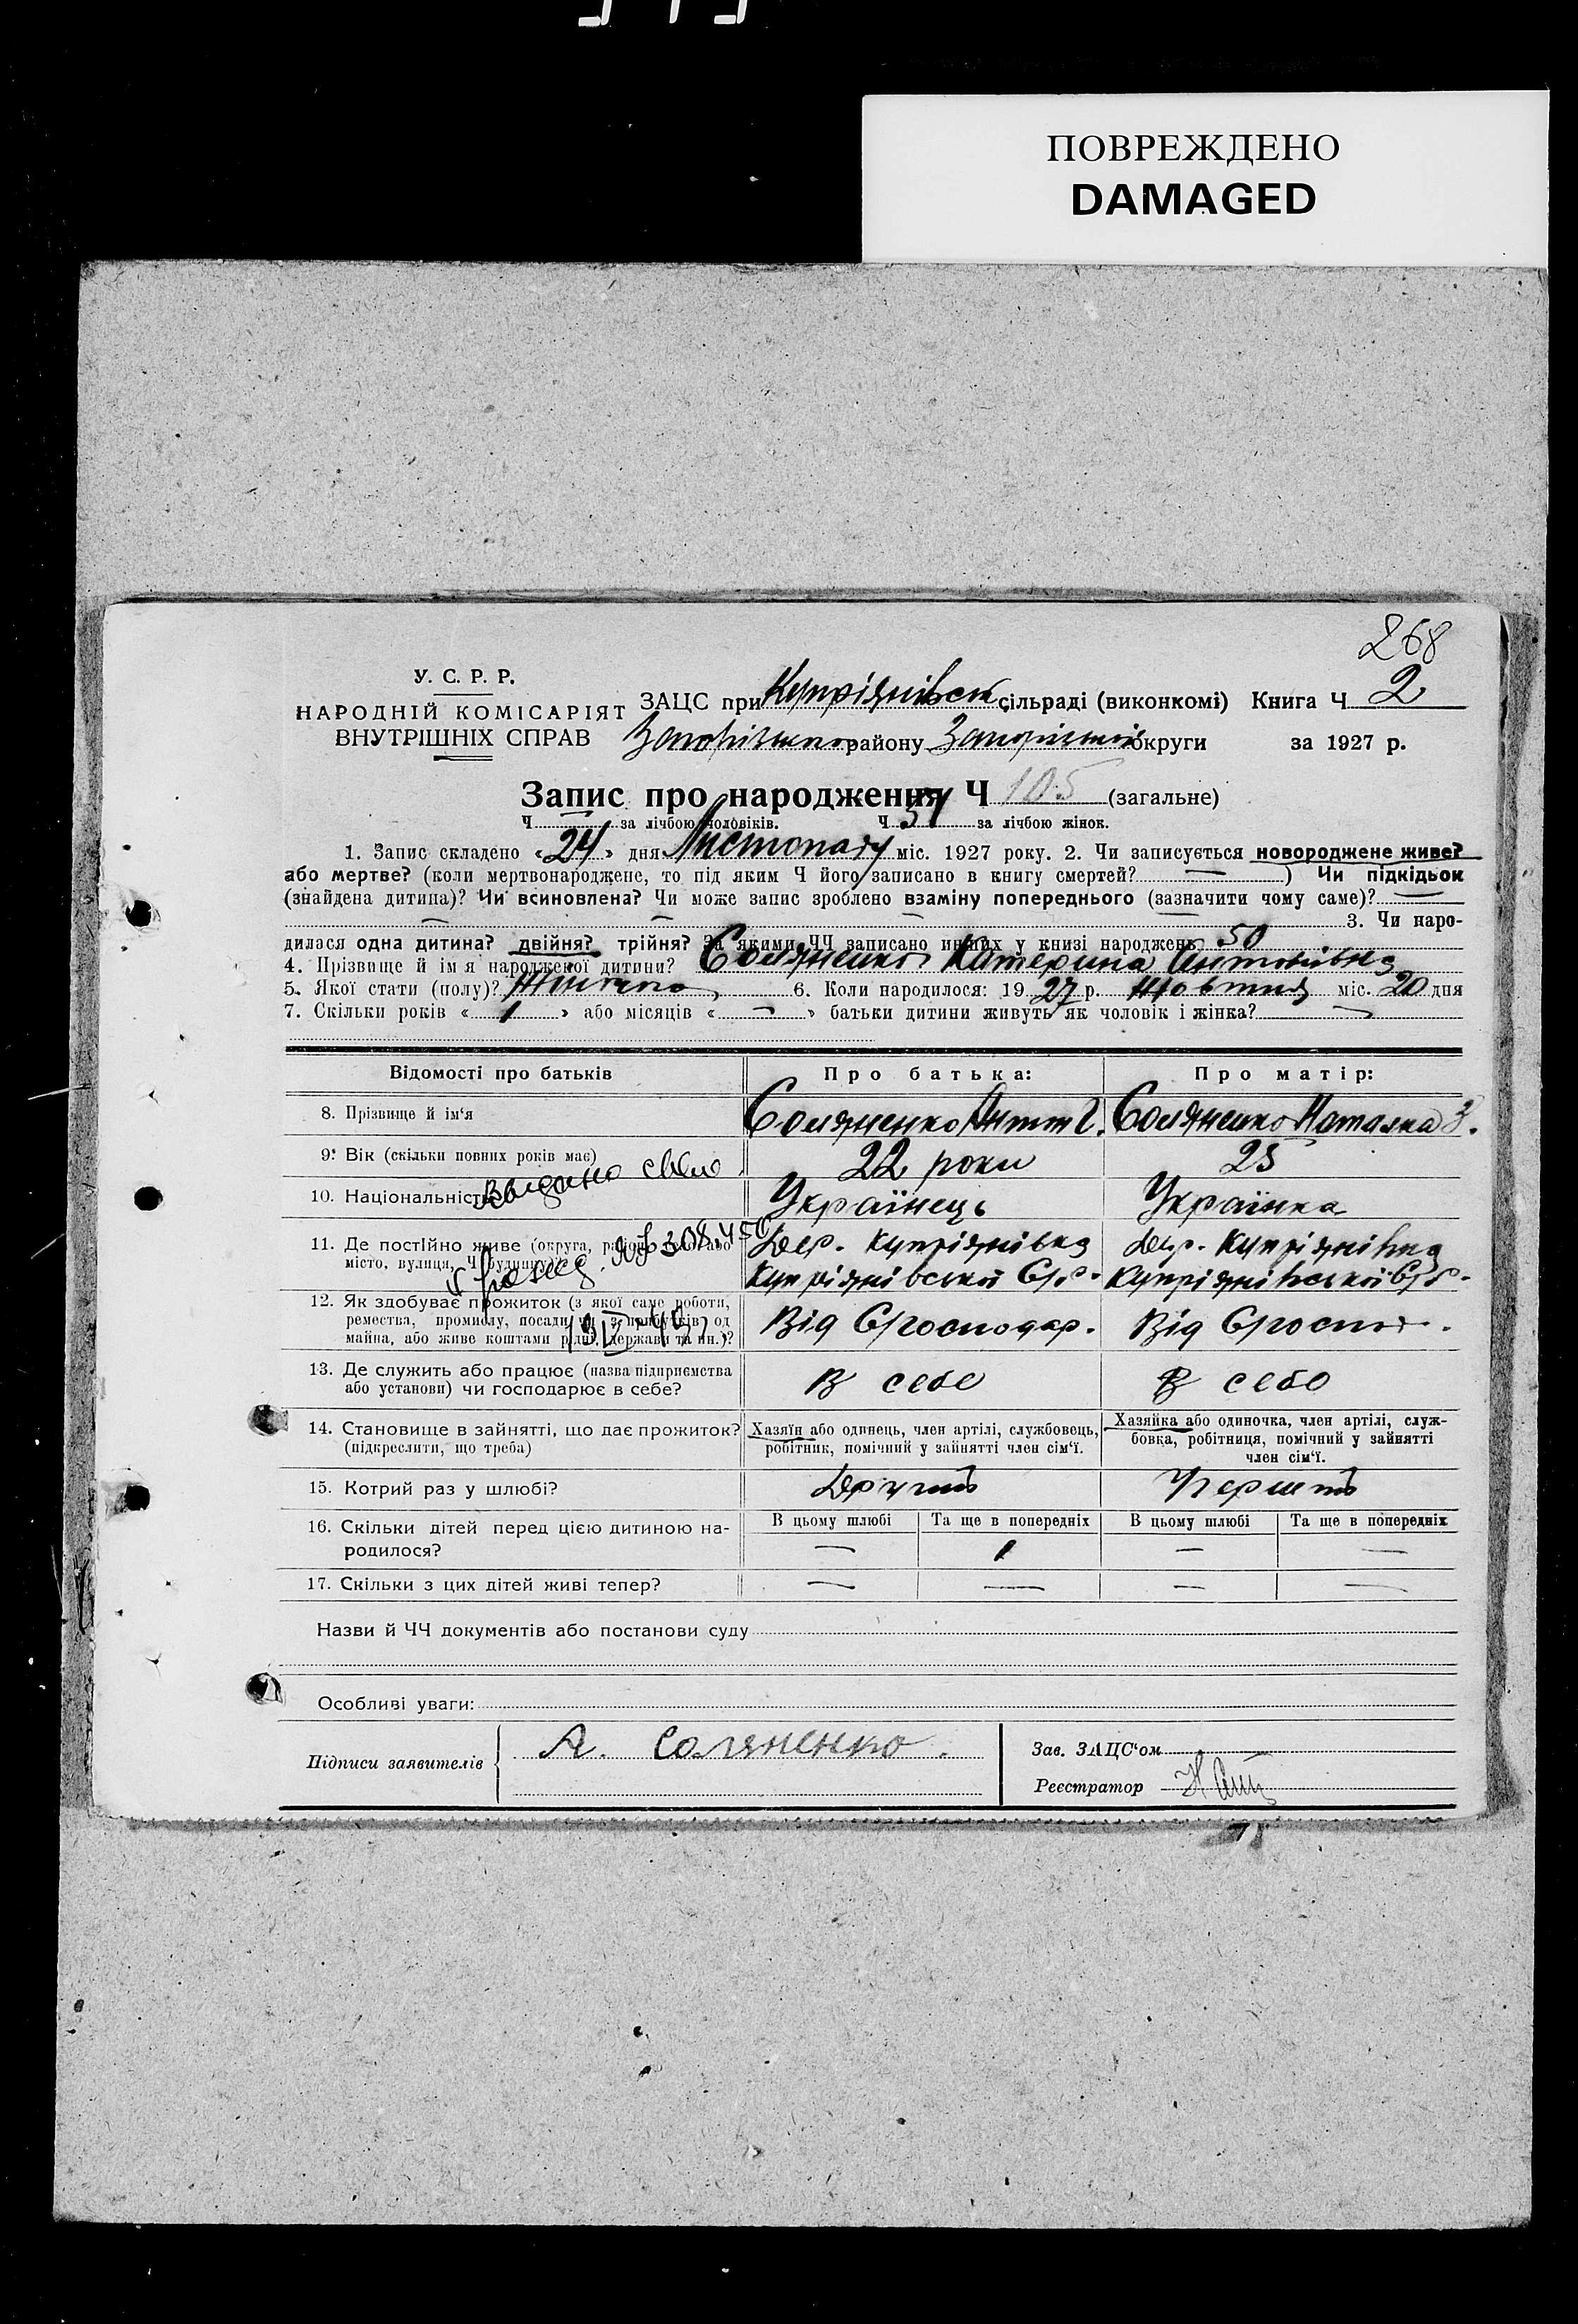 ПОВРЕЖДЕНО
DAMAGED
268
У. С. Р. Р.
НАРОДНІЙ КОМІСАРІЯТ
ВНУТРІШНІХ СПРАВ
ЗАЦС при Купріянівськ сільраді (виконкомі) Книга Ч 2
району округи за 1927 р.
Запис про народження Ч 105 (загальне)
Ч — за лічбою чоловіків. Ч 51 за лічбою жінок.
1. Запис складено «24» дня Листопаду міс. 1927 року. 2. Чи записується новороджене живе?
або мертве? (коли мертвонароджене, то під яким Ч його записано в книгу смертей? — ) Чи підкідьок
(знайдена дитина)? Чи всиновлена? Чи може запис зроблено взаміну попереднього (зазначити чому саме)? —
— — — 3. Чи наро-
дилася одна дитина? двійня? трійня? За якими ЧЧ записано инших у книзі народжень 50
4. Прізвище й ім'я народженої дитини? Соляненко Катерина Антонівна
5. Якої стати (полу)? Жіночо 6. Коли народилося: 1927 р. Жовтня міс. 20 дня
7. Скільки років «1» або місяців «—» батьки дитини живуть як чоловік і жінка? —
Відомості про батьків Про батька: Про матір:
8. Прізвище й ім'я Соляненко Антон Г. Соляненко Наталка З.
9. Вік (скільки повних років має) 22 роки 25
10. Національність Українець Українка
Выдано свид
11. Де постійно живе (округа, район, село або Дер. Купріянівка Дер. Купріянівка
місто, вулиця, Ч будинку) Купріянівської С/р. Купріянівської С/р.
12. Як здобуває прожиток (з якої саме роботи,
ремества, промислу, посади чи з прибутків од Від С/господар. Від С/господ.
майна, або живе коштами рідні, держави та ин.)?
13. Де служить або працює (назва підприємства В себе В себе
або установи) чи господарює в себе?
14. Становище в зайнятті, що дає прожиток? Хазяїн або одинець, член артілі, службовець, Хазяйка або одиночка, член артілі, служ-
(підкреслити, що треба) робітник, помічний у зайнятті член сім'ї. бовка, робітниця, помічний у зайнятті
член сім'ї.
15. Котрий раз у шлюбі? Другий Перший
16. Скільки дітей перед цією дитиною на- В цьому шлюбі Та ще в попередніх В цьому шлюбі Та ще в попередніх
родилося? — 1 — —
17. Скільки з цих дітей живі тепер? — — — —
Назви й ЧЧ документів або постанови суду
Особливі уваги:
Підписи заявителів А. Соляненко. Зав. ЗАЦС'ом
Реєстратор